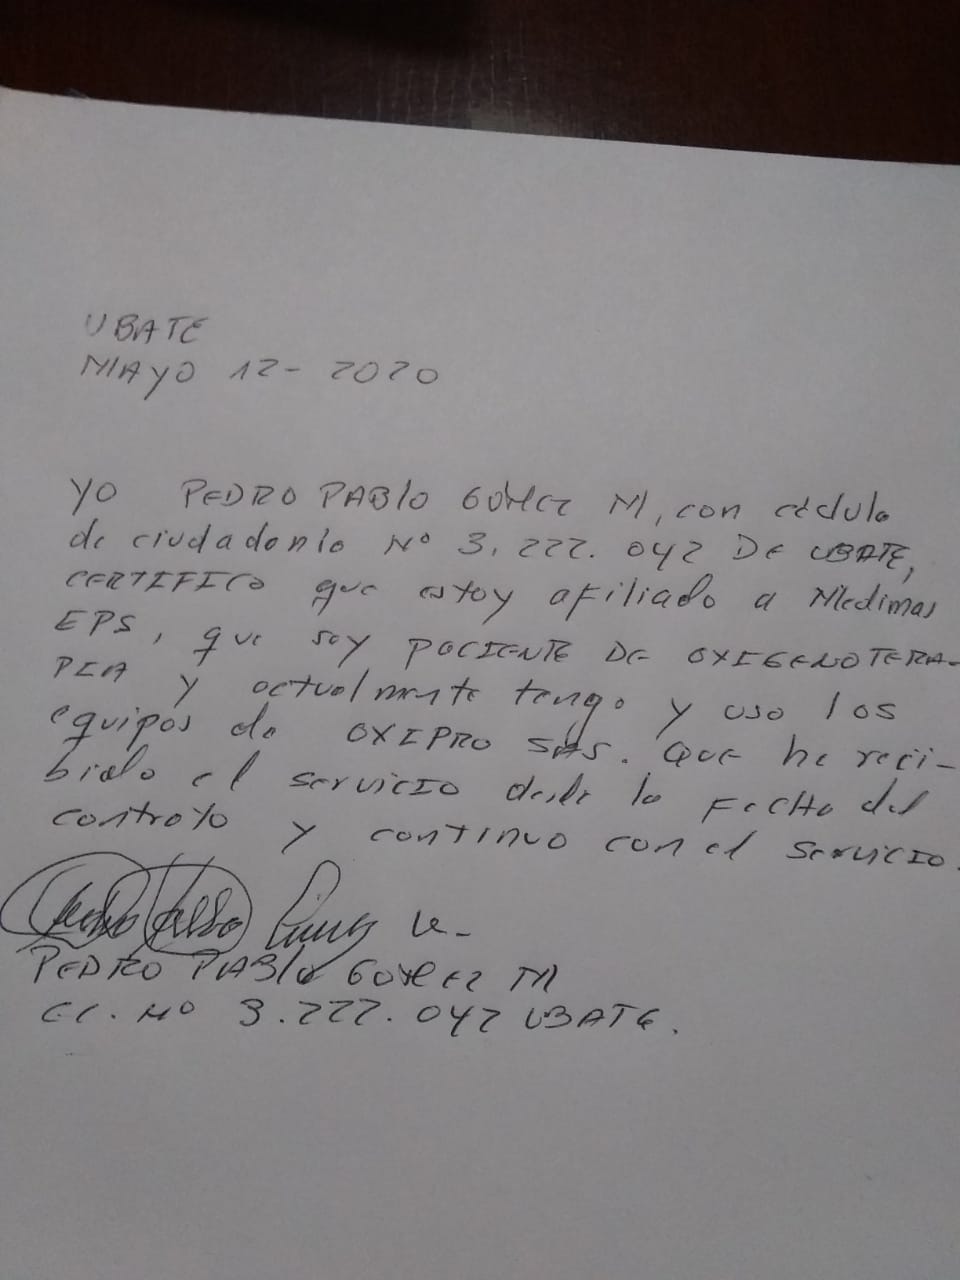 UBATE
MAYO 12- 2020
YO PEDRO PABlO GOMEZ M, con cédula
de ciudadanía Nº 3.222.042 DE UBATE,
CERTIFICO que estoy afiliado a Medimas
EPS, que soy PACIENTE DE OXIGENOTERA-
PIA y actualmente tengo y uso los
equipos de OXIPRO SAS. QUE he reci-
bido el servicio desde la FECHA del
contrato y continuo con el servicio.
PEDRO PABlo GOMEZ M
CC. Nº 3.222.042 UBATE.